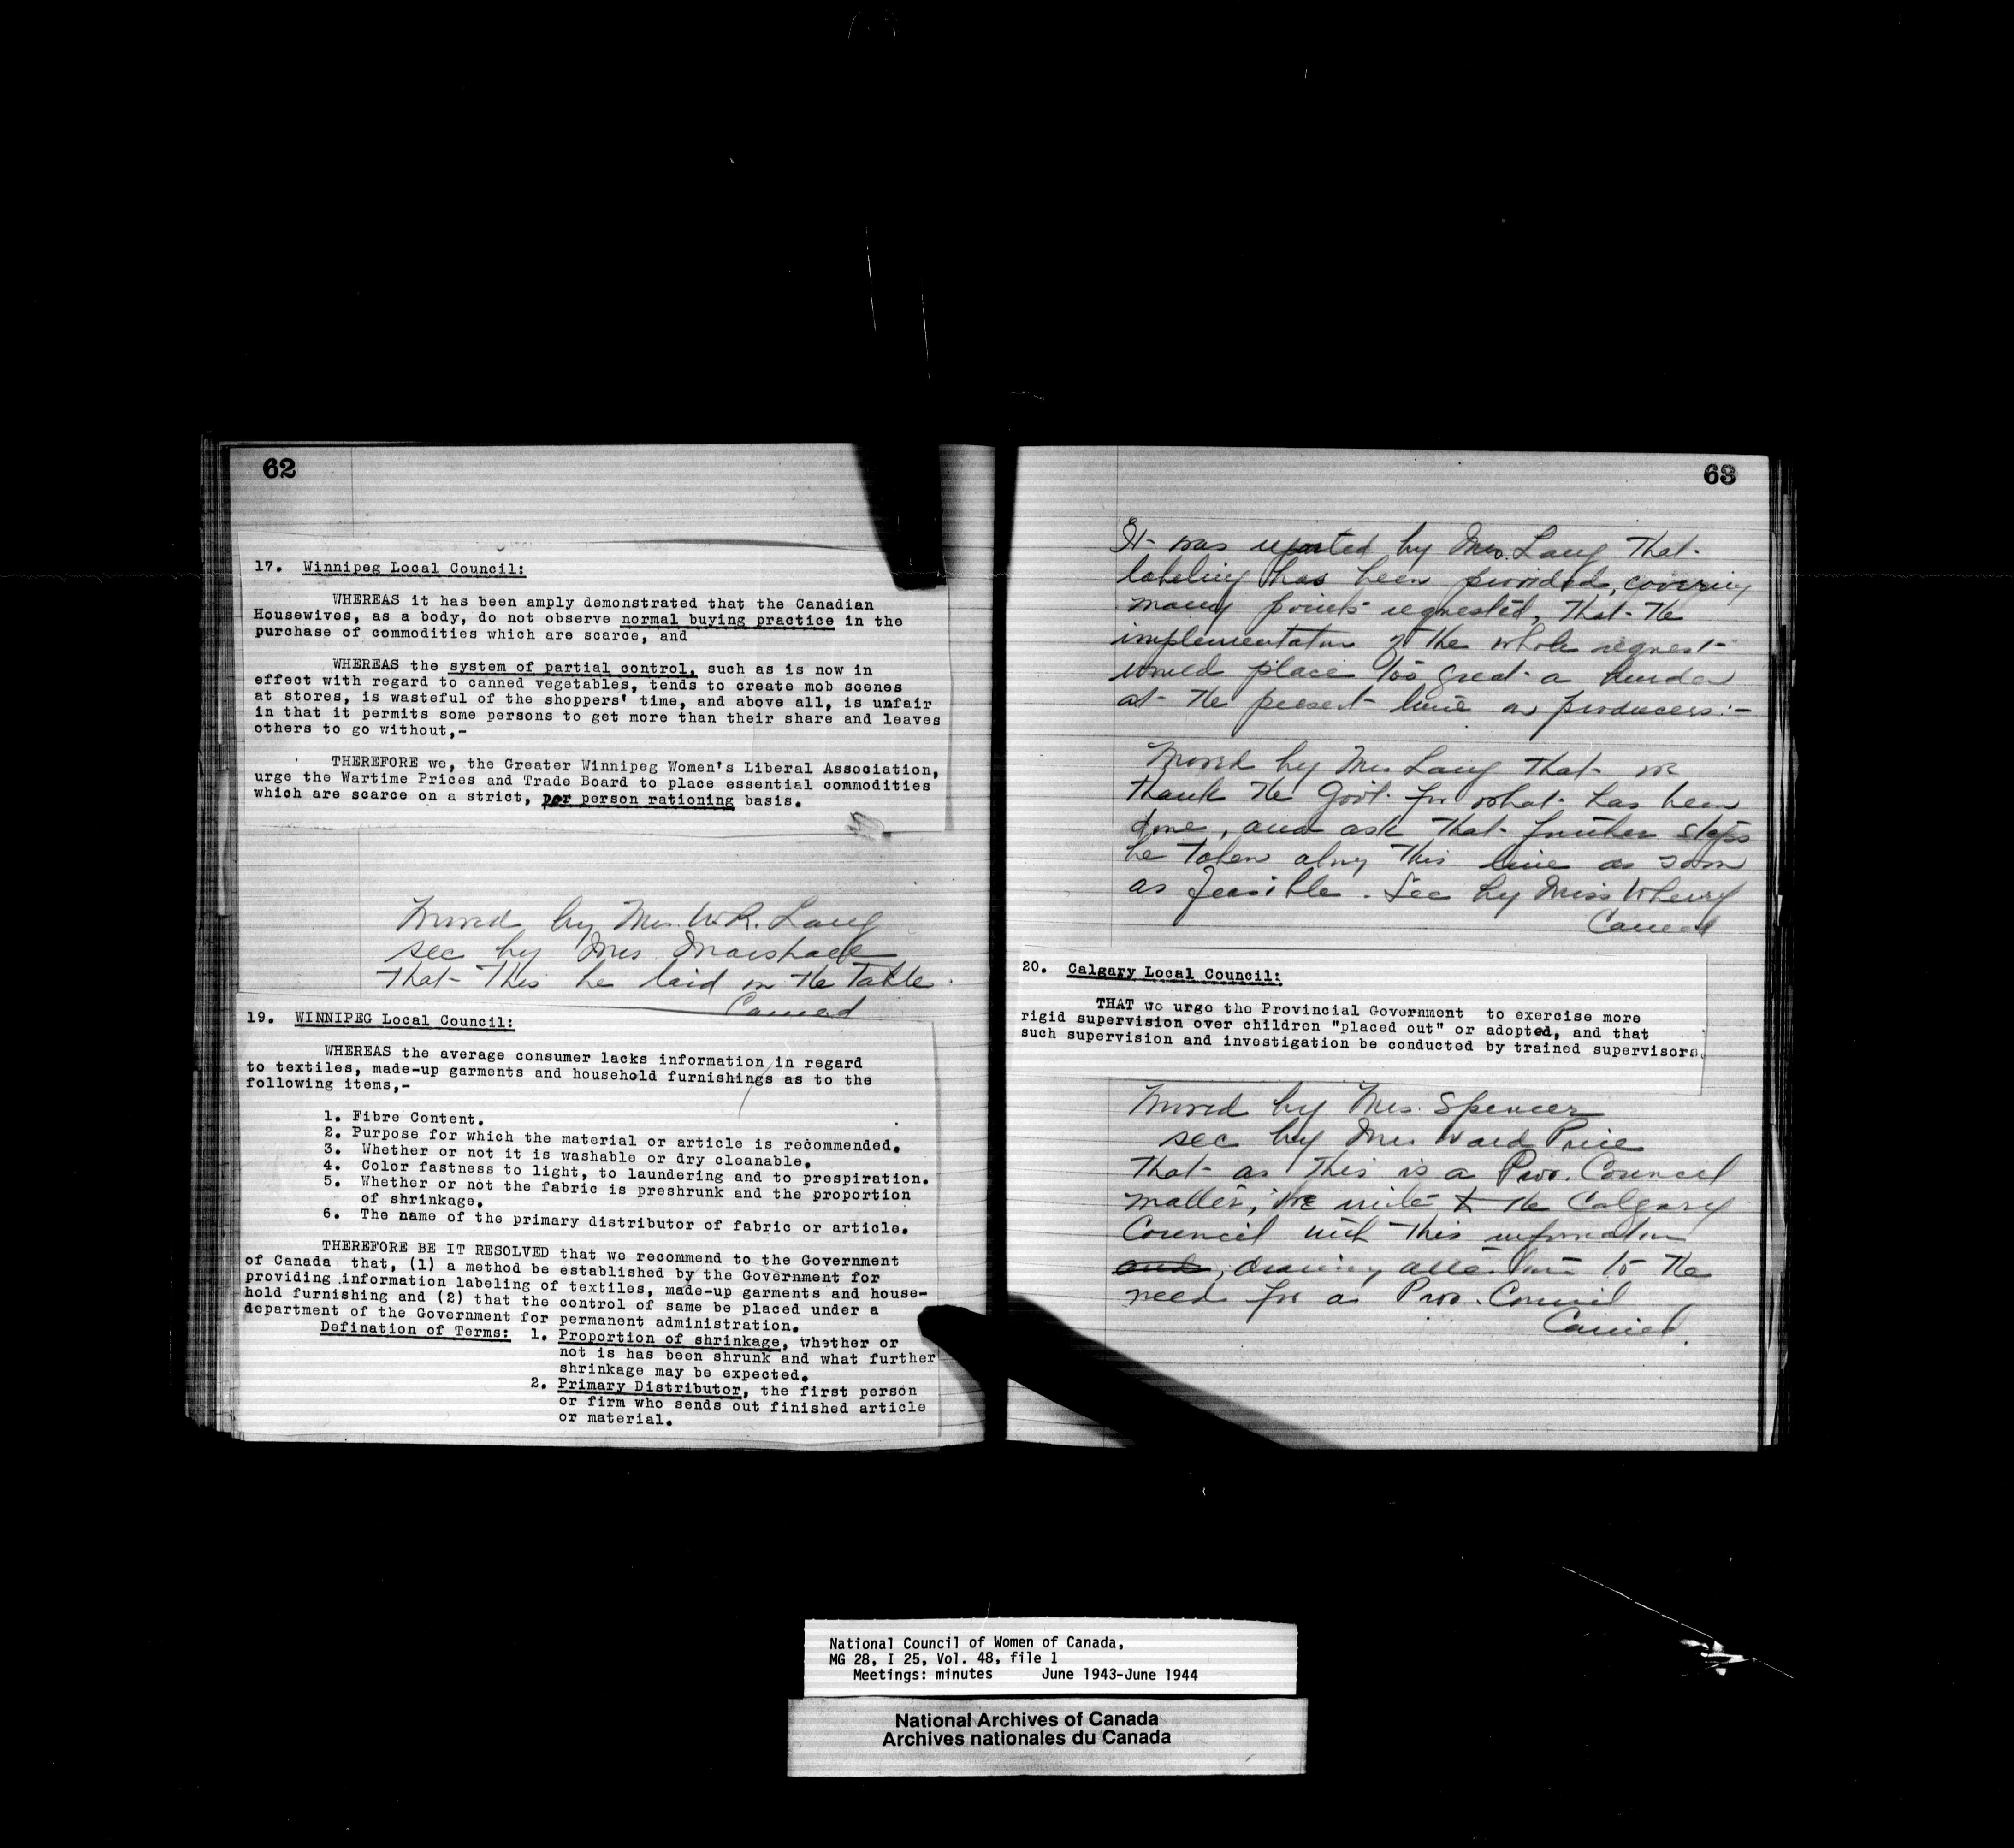 62
17. Winnipeg Local Council:
WHEREAS it has been amply demonstrated that the Canadian
Housewives, as a body, do not observe normal buying practice in the
purchase of commodities which are scarce, and
WHEREAS the system of partial control, such as is now in
effect with regard to canned vegetables, tends to create mob scenes
at stores, is wasteful of the shoppers' time, and above all, is unfair
in that it permits some persons to get more than their share and leaves
others to go without,-
THEREFORE we, the Greater Winnipeg Women's Liberal Association,
urge the Wartime Prices and Trade Board to place essential commodities
which are scarce on a strict, per person rationing basis.
Moved by Mrs. W.R. Lang
sec by Mrs Marshall
That this be laid on the Table.
Carried
19. WINNIPEG Local Council:
WHEREAS the average consumer lacks information in regard
to textiles, made-up garments and household furnishings as to the
following items,-
1. Fibre Content.
2. Purpose for which the material or article is recommended.
3. Whether or not it is washable or dry cleanable.
4. Color fastness to light, to laundering and to prespiration.
5. Whether or not the fabric is preshrunk and the proportion
of shrinkage.
6. The name of the primary distributor of fabric or article.
THEREFORE BE IT RESOLVED that we recommend to the Government
of Canada that, (1) a method be established by the Government for
providing information labeling of textiles, made-up garments and house-
hold furnishing and (2) that the control of same be placed under a
department of the Government for permanent administration.
Defination of Terms: 1. Proportion of shrinkage, whether or
not is has been shrunk and what further
shrinkage may be expected.
2. Primary Distributor, the first person
or firm who sends out finished article
or material.
63
It was reported by Mrs. Lang That
labeling has been provided, covering
many points requested, That the
implementation of the whole request
would place too great a burden
at the present time on producers:-
Moved by Mrs Lang That we
thank the Gov't for what has been
done, and ask that further steps
be taken along this line as soon
as feasible. Sec by Miss Wherry
Carried
20. Calgary Local Council:
THAT we urge the Provincial Government to exercise more
rigid supervision over children "placed out" or adopted, and that
such supervision and investigation be conducted by trained supervisors.
Moved by Mrs. Spencer
sec by Mrs Ward Price
That as this is a Prov. Council
matter, we write to the Calgary
Council with this information
and, drawing attention to the
need for a Prov. Council
Carried.
National Council of Women of Canada,
MG 28, I 25, Vol. 48, file 1
Meetings: minutes June 1943-June 1944
National Archives of Canada
Archives nationales du Canada